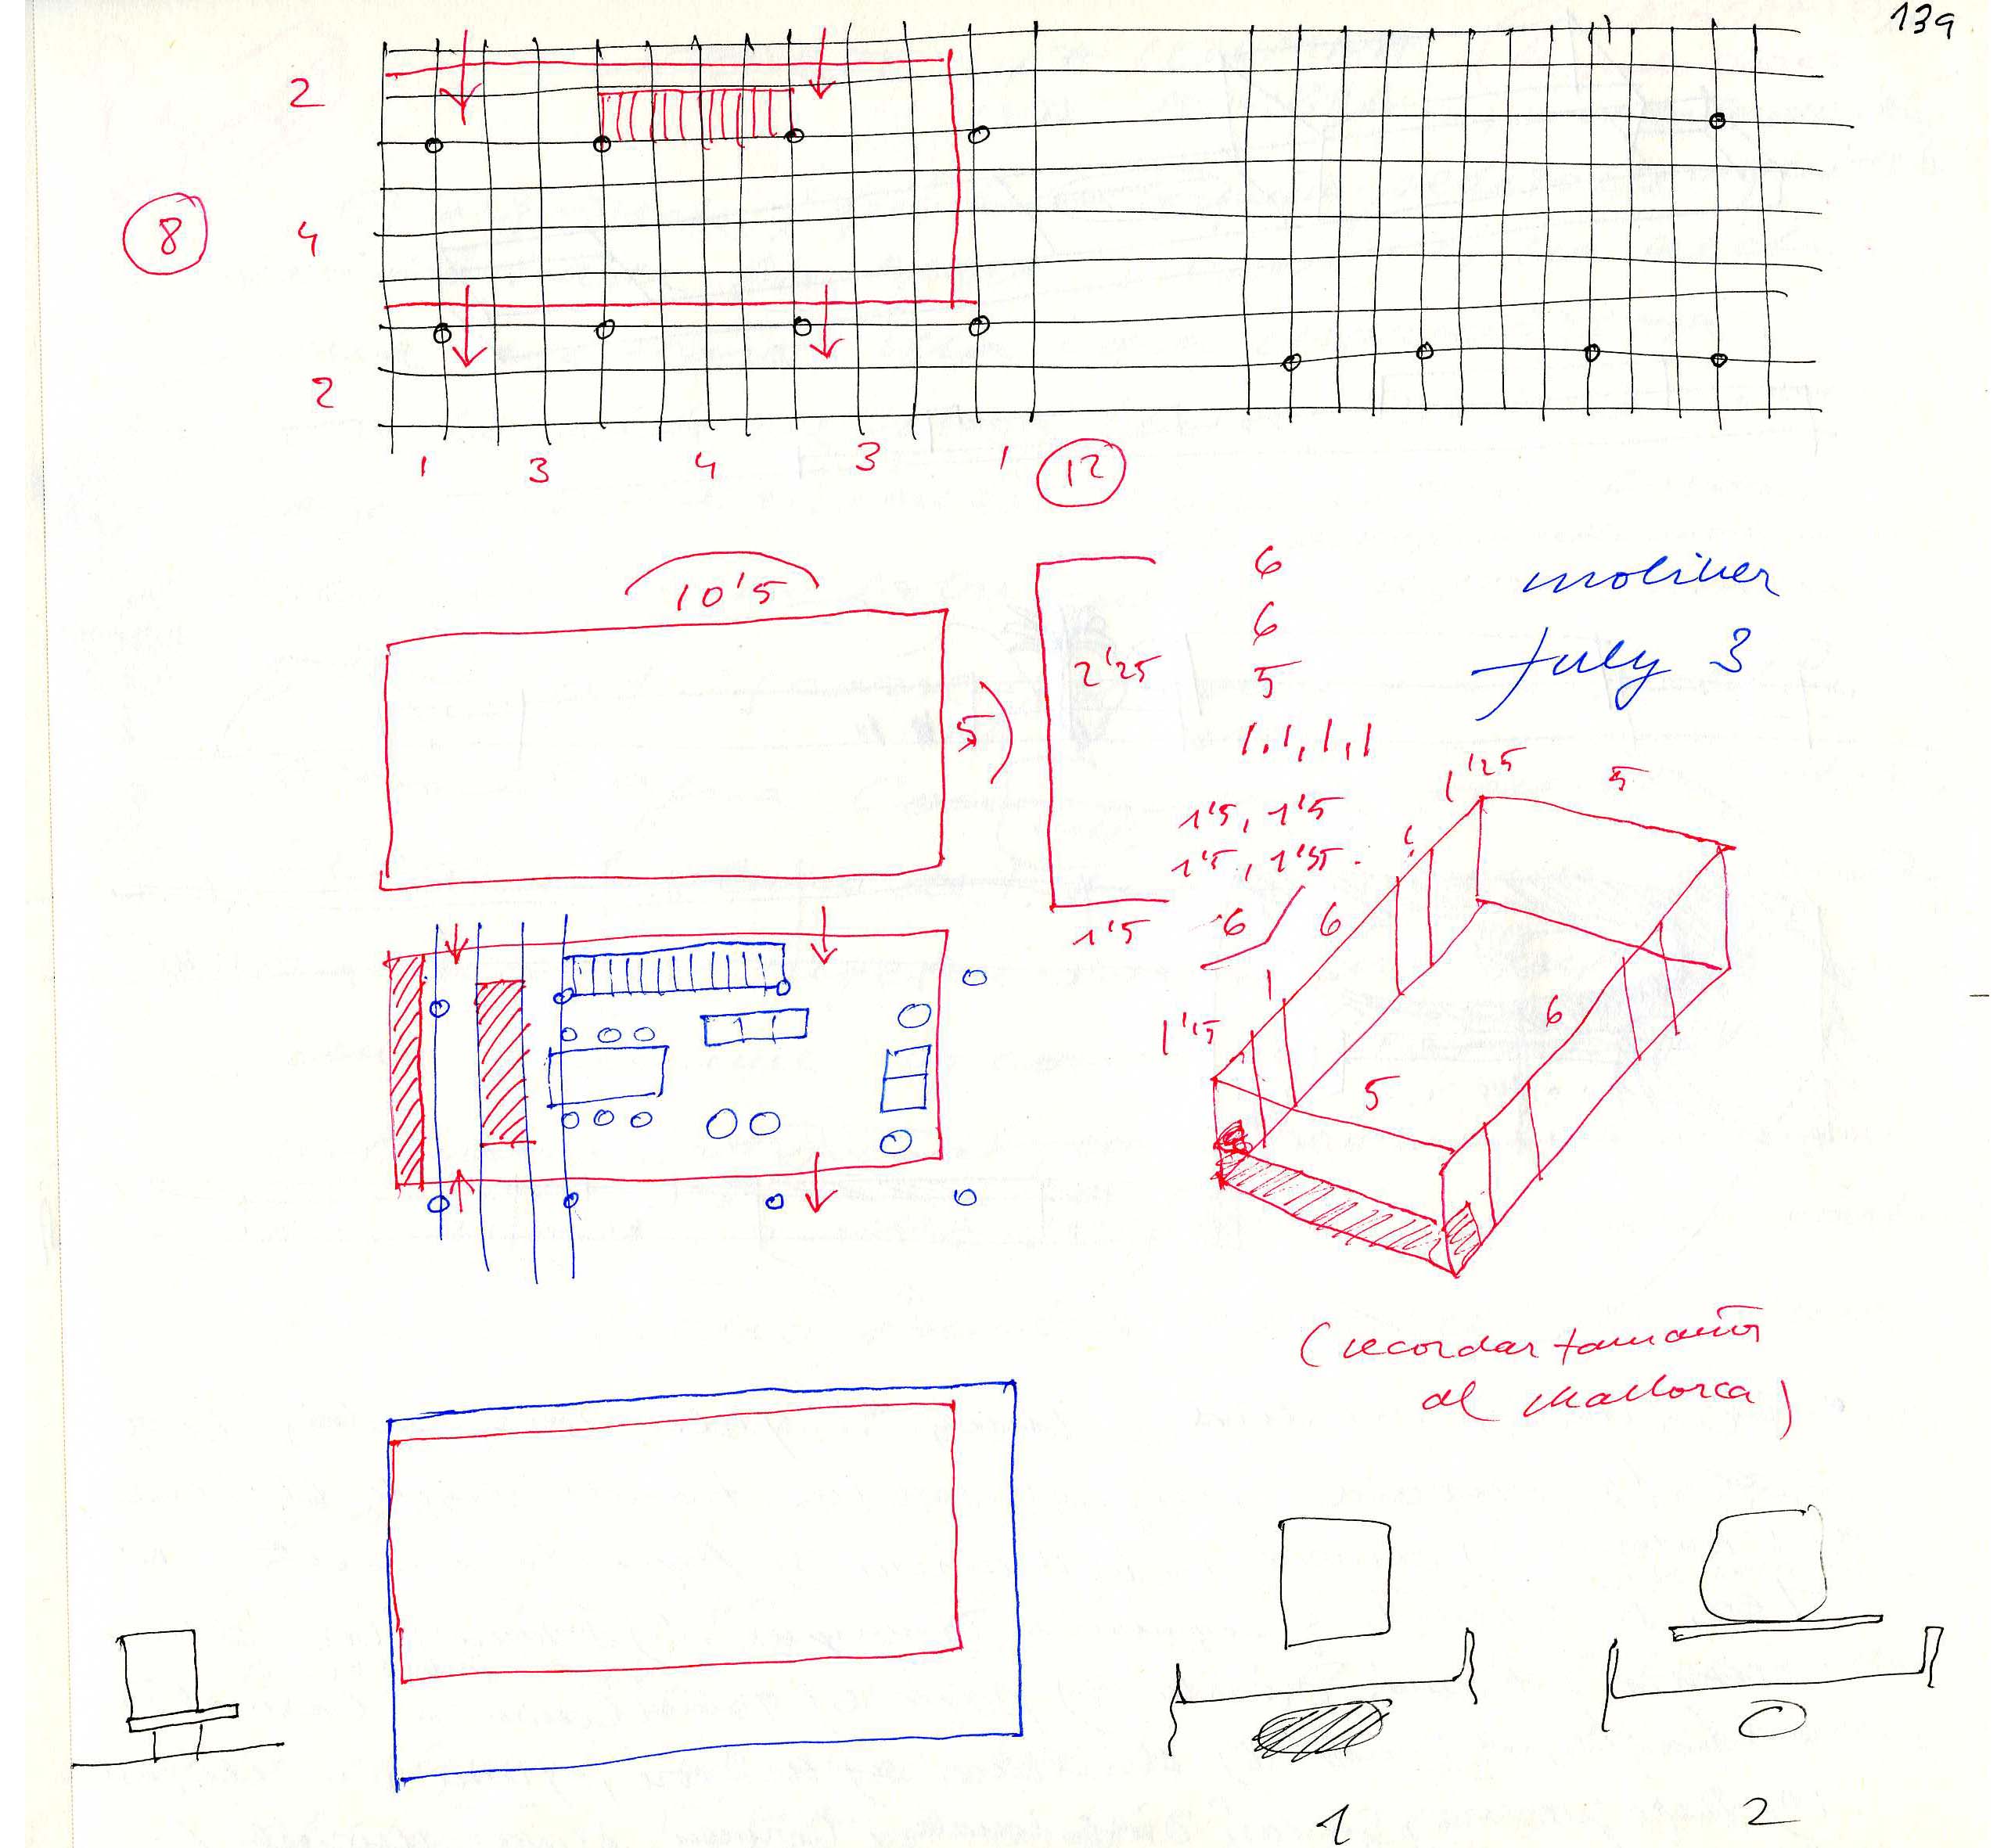 139
2
8
4
2
1 3 4 3 1 12
10'5
5
2'25
1'5
6
6
5
1, 1, 1, 1
1'5, 1'5
6
July 3
1'25
5
6
1
5
6
(recordar
al Mallorca)
1
2